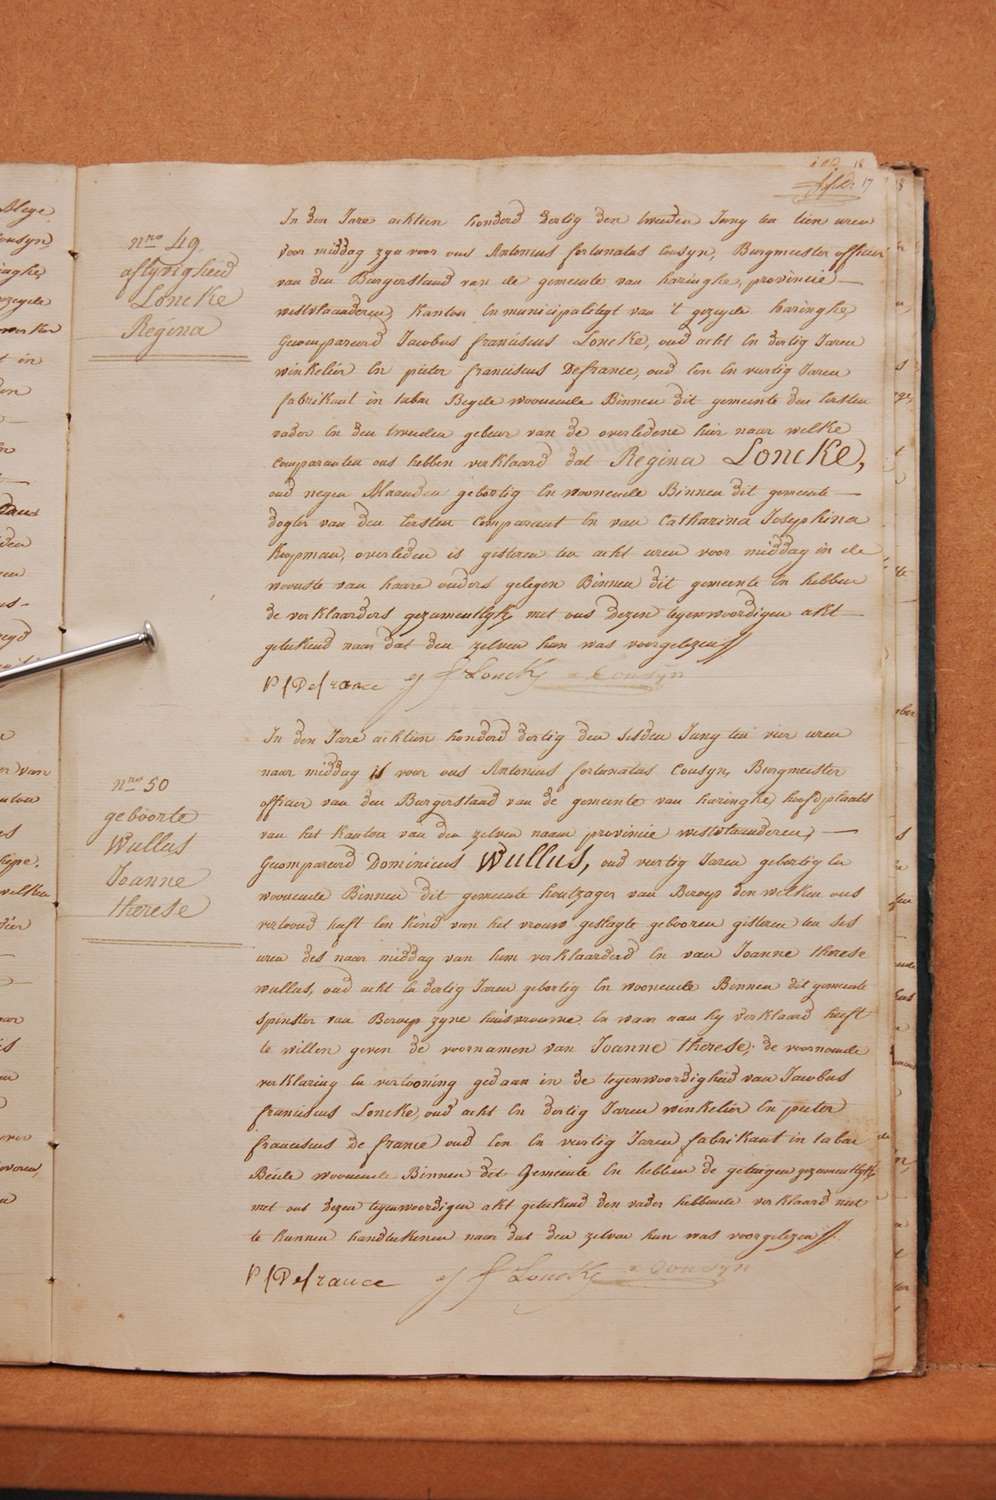 18
17
nro 49
aflyvigheid
Loncke
Regina
In den Jare achtien honderd dertig den tweeden Juny ten tien uren
voor middag zyn voor ons Antonius fortunatus Cousyn, Burgmeester officier
van den Burgerstand van de gemeente van haringhe, provincie
westvlaanderen, Kanton en municipalityt van 't gezeyde haringhe,
Gecompareerd Jacobus franciscus Loncke, oud acht en dertig Jaren
winkelier en pieter franciscus Defrance, oud een en veertig Jaren
fabrikant in tabac Beyde woonende Binnen dit gemeente den eersten
vader en den tweeden gebeur van de overledene hier naar welke
comparanten ons hebben verklaard dat Regina Loncke,
oud negen Maanden geboortig en woonende Binnen dit gemeente
dogter van den eersten comparant en van Catharina Josephina
Koopman, overleden is gisteren ten acht uren voor middag in de
woonste van haare ouders gelegen Binnen dit gemeente en hebben
de verklaarders gezamentlyk met ons dezen tegenwoordigen akt
geteekend naar dat den zelven hun was voorgelezen
P f Defrance J f Loncke Cousyn
nro 50
geboorte
Wullus
Joanne
therese
In den Jare achtien honderd dertig den sesden Juny ten vier uren
naar middag is voor ons Antonius fortunatus Cousyn, Burgmeister
officier van den Burgerstand van de gemeente van haringhe, hoofdplaats
van het Kanton van den zelven naam provincie westvlaanderen,
Gecompareerd Dominicus Wullus, oud veertig Jaren geboortig en
woonende Binnen dit gemeente houtzager van Beroep den welken ons
vertoond heeft een kind van het vrouw geslagte gebooren gisteren ten ses
uren des naar middag van hem verklaarderd en van Joanne therese
wullus, oud acht en dertig Jaren geboortig en woonende Binnen dit gemeente
spinster van Beroep zyne huisvrouwe en waar aan hy verklaard heeft
te willen geven de voornamen van Joanne therese; de voornoemde
verklaring en vertooning gedaan in de tegenwoordigheid van Jacobus
franciscus Loncke, oud acht en dertig Jaren winkelier en pieter
franciscus De france oud een en veertig Jaren fabrikant in tabac
Beide woonende Binnen dit Gemeente en hebben de getuigen gezamentlyk
met ons dezen tegenwoordigen akt geteekend den vader hebbende verklaard niet
te kunnen handteekenen naar dat den zelven hun was voorgelezen
P f Defrance J f Loncke Cousyn